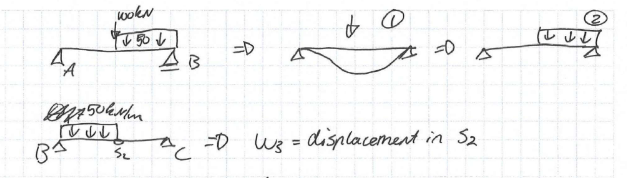 100kN
↓ 50 ↓
①
②
A
B
=D
=D
50kN/m
B
S2
C
=D W3 = displacement in S2